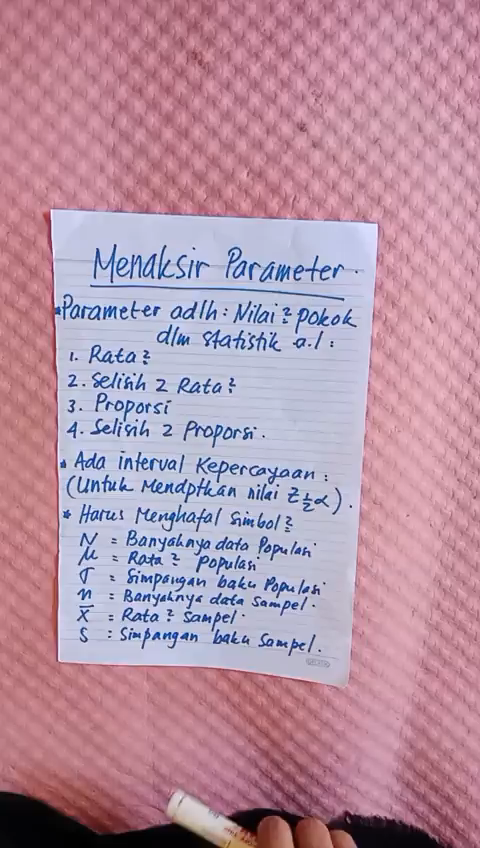 Menaksir Parameter.
* Parameter adlh : Nilai² pokok
dlm statistik a.l :
1. Rata²
2. Selisih 2 Rata²
3. Proporsi
4. Selisih 2 Proporsi.
* Ada interval Kepercayaan :
(Untuk Mendptkan nilai Z½α).
* Harus Menghafal Simbol²
N = Banyaknya data Populasi
μ = Rata² Populasi
σ = Simpangan baku Populasi
n = Banyaknya data Sampel.
x̄ = Rata² Sampel.
S : Simpangan baku Sampel.